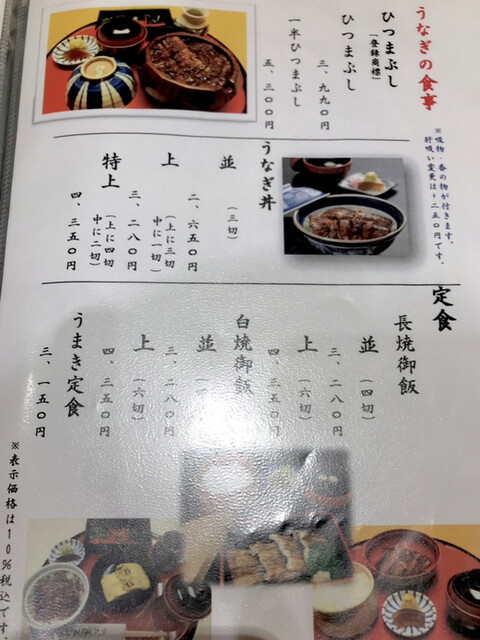 うなぎの食事
ひつまぶし
「登録商標」
ひつまぶし
三、九九〇円
一半ひつまぶし
五、三〇〇円
※吸物・香の物が付きます。
肝吸い変更は+二五〇円です。
うなぎ丼
並
(三切)
二、六五〇円
上
(上に三切
中に一切)
三、二八〇円
特上
(上に四切
中に二切)
四、三五〇円
定食
長焼御飯
並
(四切)
三、二八〇円
上
(六切)
四、三五〇円
白焼御飯
並
三、二八〇円
上
(六切)
四、三五〇円
うまき定食
三、一五〇円
※表示価格は10%税込です。